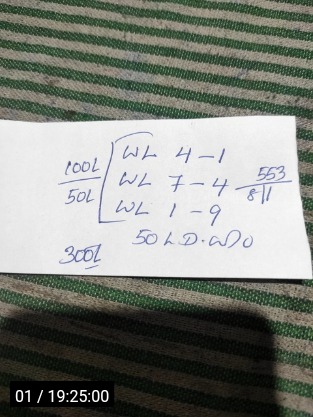 WL 4-1
100L
WL 7-4 553
50L 811
WL 1-9
50 L D.W)0
300L
01 / 19:25:00